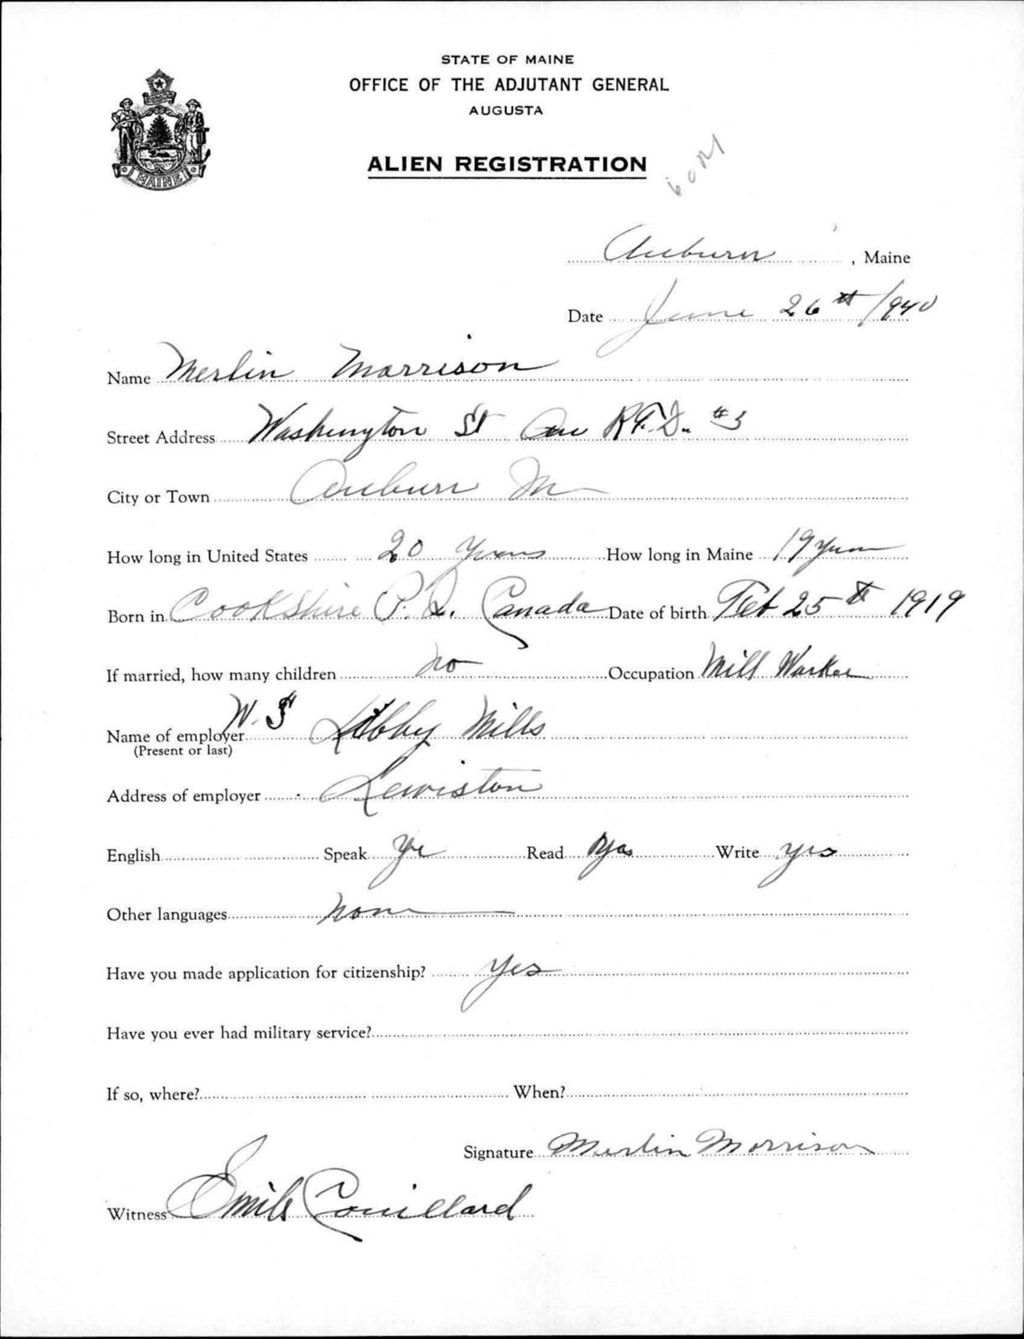 STATE OF MAINE
OFFICE OF THE ADJUTANT GENERAL
AUGUSTA
ALIEN REGISTRATION
MAINE
Auburn , Maine
Date June 26th 1940
Name Merlin Morrison
Street Address Washington St R.F.D. #3
City or Town Auburn Me
How long in United States 20 Years How long in Maine 19 Years
Born in Cookshire P.Q. Canada Date of birth Feb 25th 1919
If married, how many children no Occupation Mill Worker
Name of employer W.S Libby Mills
(Present or last)
Address of employer Lewiston
English Speak Yes Read Yes Write yes
Other languages none
Have you made application for citizenship? Yes
Have you ever had military service?
If so, where? When?
Signature Merlin Morrison
Witness Emile Couillard